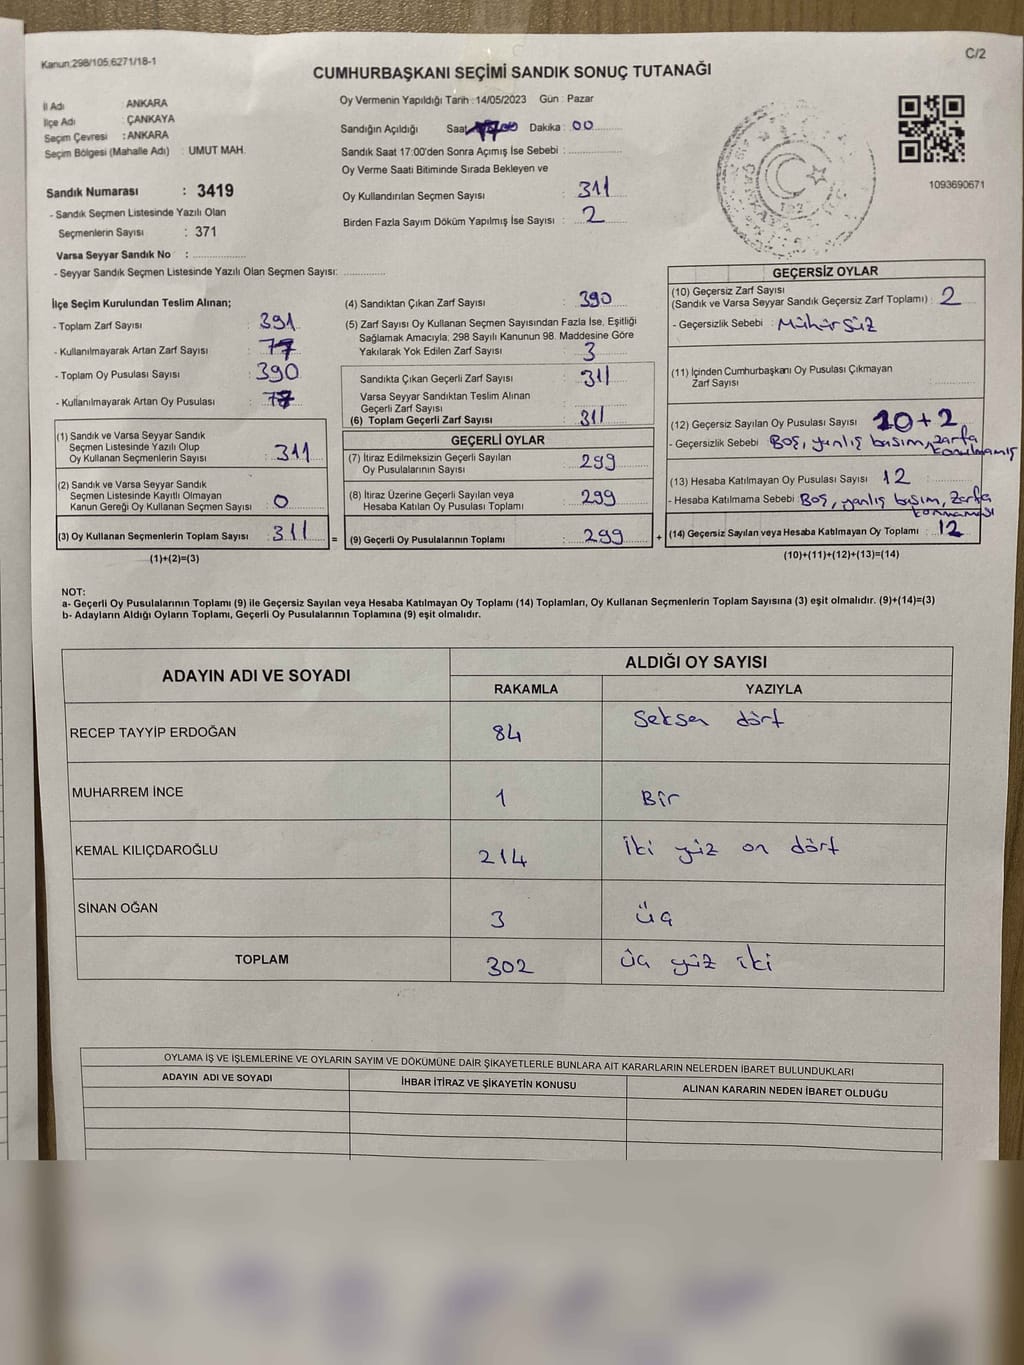 Kanun:298/105;6271/18-1
C/2
CUMHURBAŞKANI SEÇİMİ SANDIK SONUÇ TUTANAĞI
İl Adı : ANKARA
İlçe Adı : ÇANKAYA
Seçim Çevresi : ANKARA
Seçim Bölgesi (Mahalle Adı) : UMUT MAH.
Sandık Numarası : 3419
- Sandık Seçmen Listesinde Yazılı Olan
Seçmenlerin Sayısı : 371
Varsa Seyyar Sandık No : ................
- Seyyar Sandık Seçmen Listesinde Yazılı Olan Seçmen Sayısı: ............
Oy Vermenin Yapıldığı Tarih : 14/05/2023 Gün : Pazar
Sandığın Açıldığı Saat Dakika : 00
Sandık Saat 17:00'den Sonra Açımış İse Sebebi : ................
Oy Verme Saati Bitiminde Sırada Bekleyen ve
Oy Kullandırılan Seçmen Sayısı : 311
Birden Fazla Sayım Döküm Yapılmış İse Sayısı : 2
1093690671
İlçe Seçim Kurulundan Teslim Alınan;
- Toplam Zarf Sayısı : 391
- Kullanılmayarak Artan Zarf Sayısı : 77
- Toplam Oy Pusulası Sayısı : 390
- Kullanılmayarak Artan Oy Pusulası : 78
(1) Sandık ve Varsa Seyyar Sandık
Seçmen Listesinde Yazılı Olup
Oy Kullanan Seçmenlerin Sayısı : 311
(2) Sandık ve Varsa Seyyar Sandık
Seçmen Listesinde Kayıtlı Olmayan
Kanun Gereği Oy Kullanan Seçmen Sayısı : 0
(3) Oy Kullanan Seçmenlerin Toplam Sayısı : 311 =
(1)+(2)=(3)
(4) Sandıktan Çıkan Zarf Sayısı : 390
(5) Zarf Sayısı Oy Kullanan Seçmen Sayısından Fazla İse, Eşitliği
Sağlamak Amacıyla; 298 Sayılı Kanunun 98. Maddesine Göre
Yakılarak Yok Edilen Zarf Sayısı : 3
Sandıkta Çıkan Geçerli Zarf Sayısı : 311
Varsa Seyyar Sandıktan Teslim Alınan
Geçerli Zarf Sayısı
(6) Toplam Geçerli Zarf Sayısı : 311
GEÇERLİ OYLAR
(7) İtiraz Edilmeksizin Geçerli Sayılan
Oy Pusulalarının Sayısı : 299
(8) İtiraz Üzerine Geçerli Sayılan veya
Hesaba Katılan Oy Pusulası Toplamı : 299
(9) Geçerli Oy Pusulalarının Toplamı : 299 +
GEÇERSİZ OYLAR
(10) Geçersiz Zarf Sayısı
(Sandık ve Varsa Seyyar Sandık Geçersiz Zarf Toplamı) : 2
- Geçersizlik Sebebi : Mühürsüz
(11) İçinden Cumhurbaşkanı Oy Pusulası Çıkmayan
Zarf Sayısı : ............
(12) Geçersiz Sayılan Oy Pusulası Sayısı : 10+2
- Geçersizlik Sebebi : Boş, yanlış basım, zarfa
konulmamış
(13) Hesaba Katılmayan Oy Pusulası Sayısı : 12
- Hesaba Katılmama Sebebi : Boş, yanlış basım, zarfa
konmaması
(14) Geçersiz Sayılan veya Hesaba Katılmayan Oy Toplamı : 12
(10)+(11)+(12)+(13)=(14)
NOT:
a- Geçerli Oy Pusulalarının Toplamı (9) ile Geçersiz Sayılan veya Hesaba Katılmayan Oy Toplamı (14) Toplamları, Oy Kullanan Seçmenlerin Toplam Sayısına (3) eşit olmalıdır. (9)+(14)=(3)
b- Adayların Aldığı Oyların Toplamı, Geçerli Oy Pusulalarının Toplamına (9) eşit olmalıdır.
ADAYIN ADI VE SOYADI ALDIĞI OY SAYISI
RAKAMLA YAZIYLA
RECEP TAYYİP ERDOĞAN 84 Seksen dört
MUHARREM İNCE 1 Bir
KEMAL KILIÇDAROĞLU 214 İki yüz on dört
SİNAN OĞAN 3 üç
TOPLAM 302 üç yüz iki
OYLAMA İŞ VE İŞLEMLERİNE VE OYLARIN SAYIM VE DÖKÜMÜNE DAİR ŞİKAYETLERLE BUNLARA AİT KARARLARIN NELERDEN İBARET BULUNDUKLARI
ADAYIN ADI VE SOYADI İHBAR İTİRAZ VE ŞİKAYETİN KONUSU ALINAN KARARIN NEDEN İBARET OLDUĞU